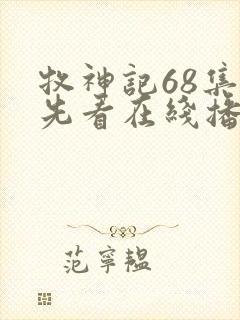 牧神記68集
先看在綫播
范寧韞